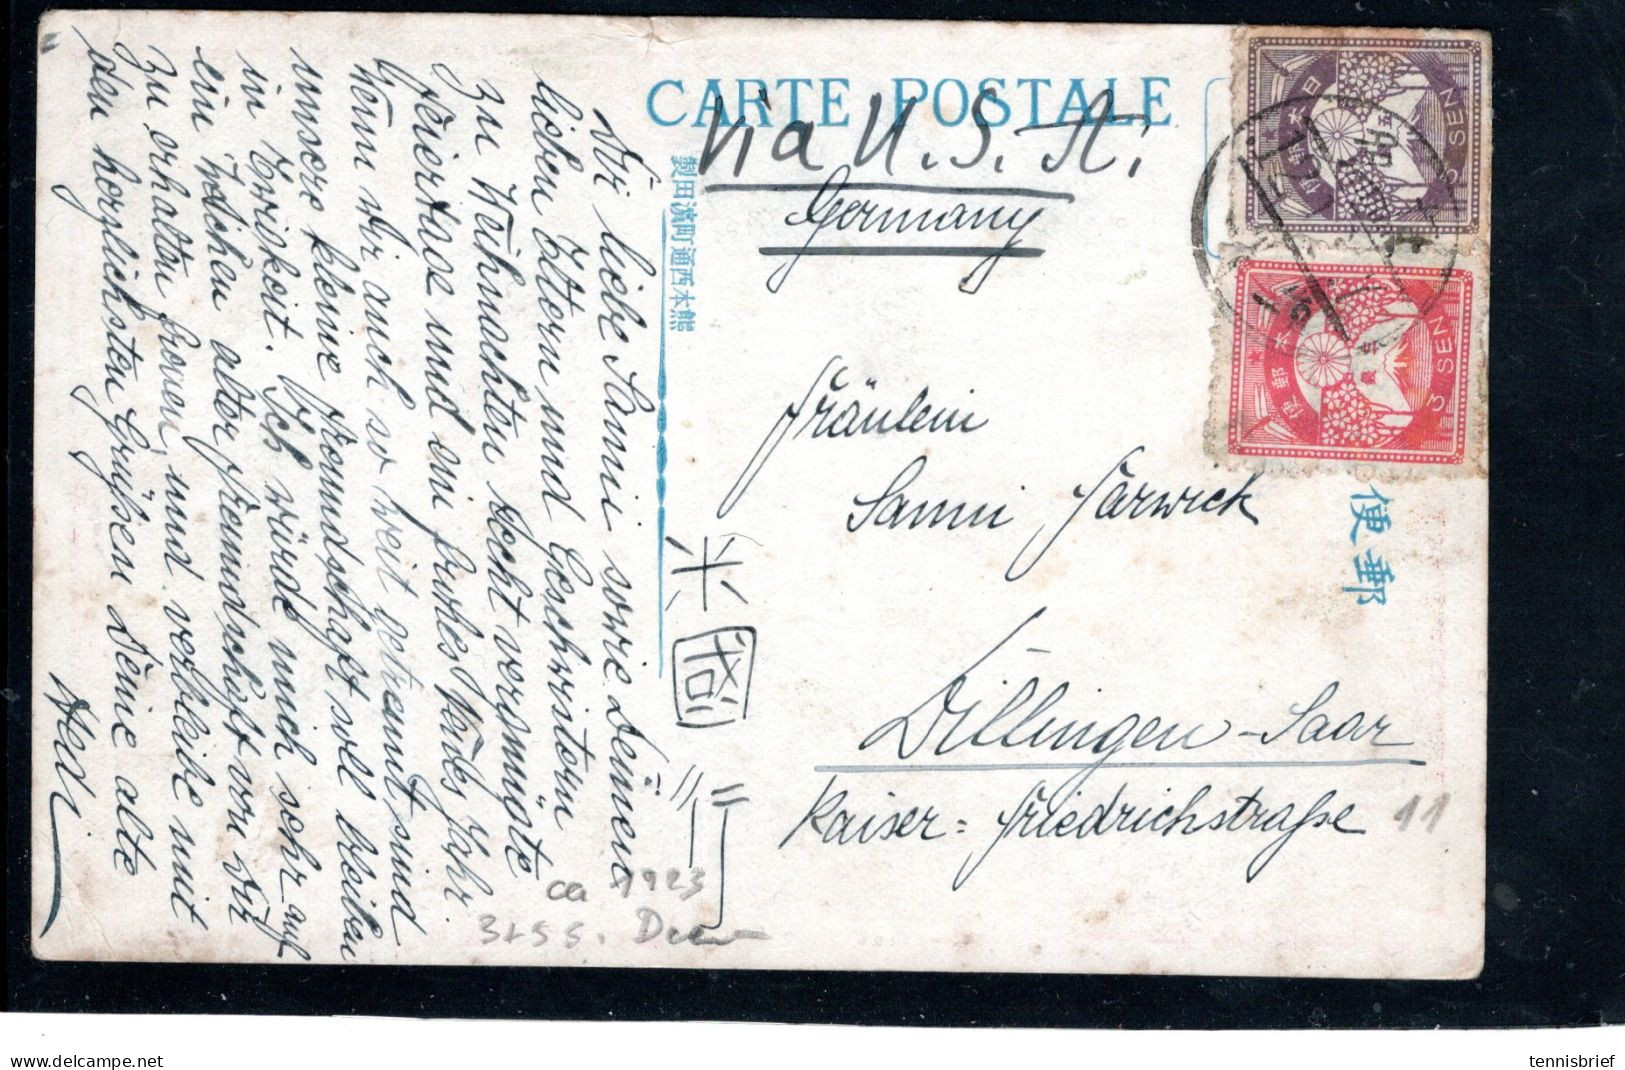 CARTE POSTALE
Via U. S. A.
Germany
Fräulein
Sanni Jarwick
Dillingen-Saar
Kaiser=Friedrichstraße 11
米
國
行
熊本西通町濵田製
便郵
3 SEN
3 SEN
Dir liebe Sanni sowie Deinen
lieben Eltern und Geschwistern
zu Weihnachten recht vernünfte
Feiertage und ein frohes Neues Jahr.
Wenn wir auch so weit getrennt sind
unsere kleine Freundschaft soll bleiben
in Ewigkeit. Ich würde mich sehr auf
ein Zeichen alter Freundschaft von Dir
zu erhalten freuen, und verbleibe mit
den herzlichsten Grüßen Deine alte
Hedi
ca 1923